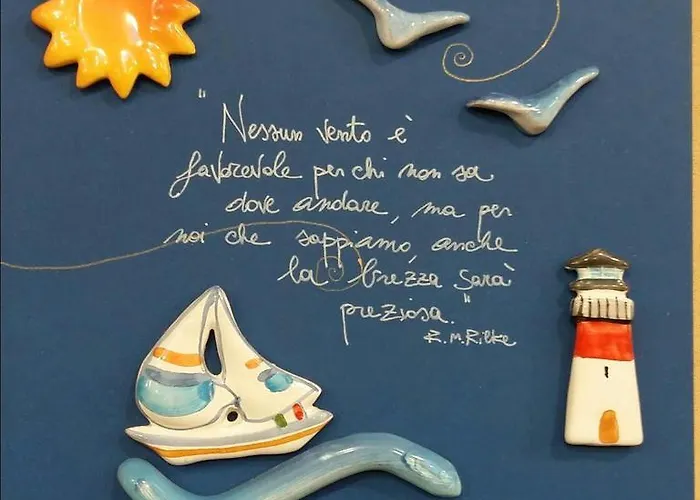 "Nessun vento è
favorevole per chi non sa
dove andare, ma per
noi che sappiamo, anche
la brezza sarà
preziosa."
R.M.Rilke